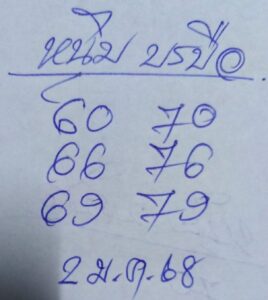 หนุ่ม บรบือ
60 70
66 76
69 79
2 ม.ค.68